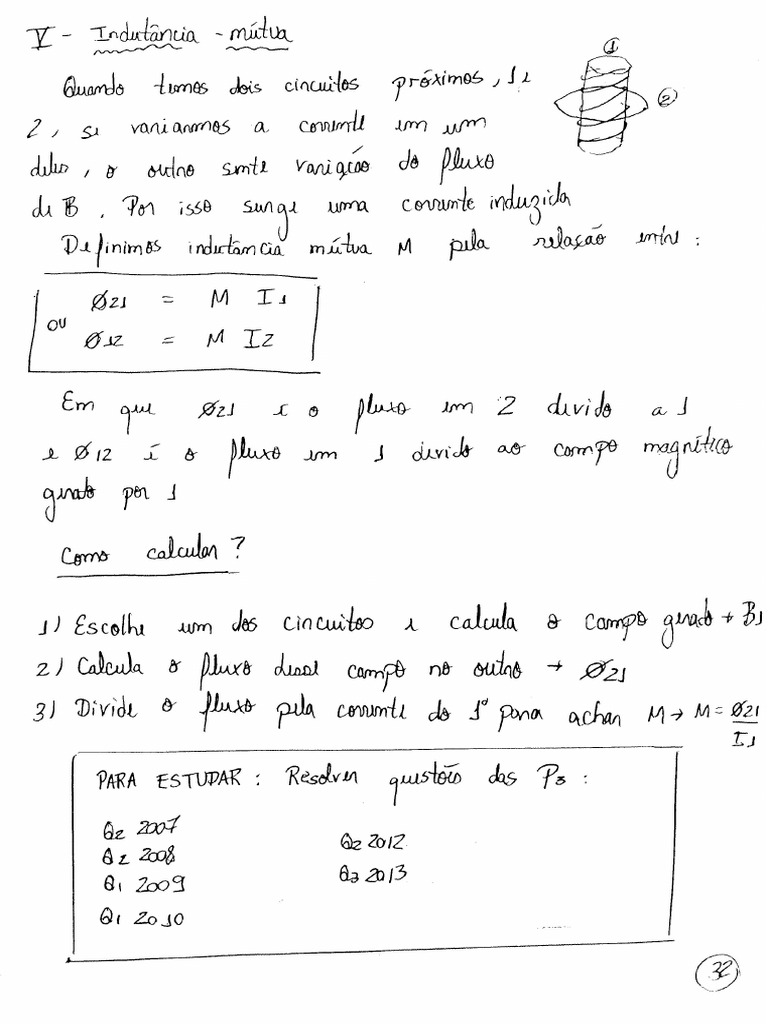 V - Indutância - mútua
①
Quando temos dois circuitos próximos, 1 e
②
2, se variarmos a corrente em um
deles, o outro sente variação do fluxo
de B. Por isso surge uma corrente induzida
Definimos indutância mútua M pela relação entre:
ø21 = M I1
ou
ø12 = M I2
Em que ø21 é o fluxo em 2 devido a 1
e ø12 é o fluxo em 1 devido ao campo magnético
gerado por 1
Como calcular?
1) Escolhe um dos circuitos e calcula o campo gerado → B1
2) Calcula o fluxo desse campo no outro → ø21
3) Divide o fluxo pela corrente do 1º para achar M → M = ø21
I1
PARA ESTUDAR: Resolver questões das P3:
Q2 2007
Q2 2008
Q1 2009
Q1 2010
Q2 2012
Q3 2013
32